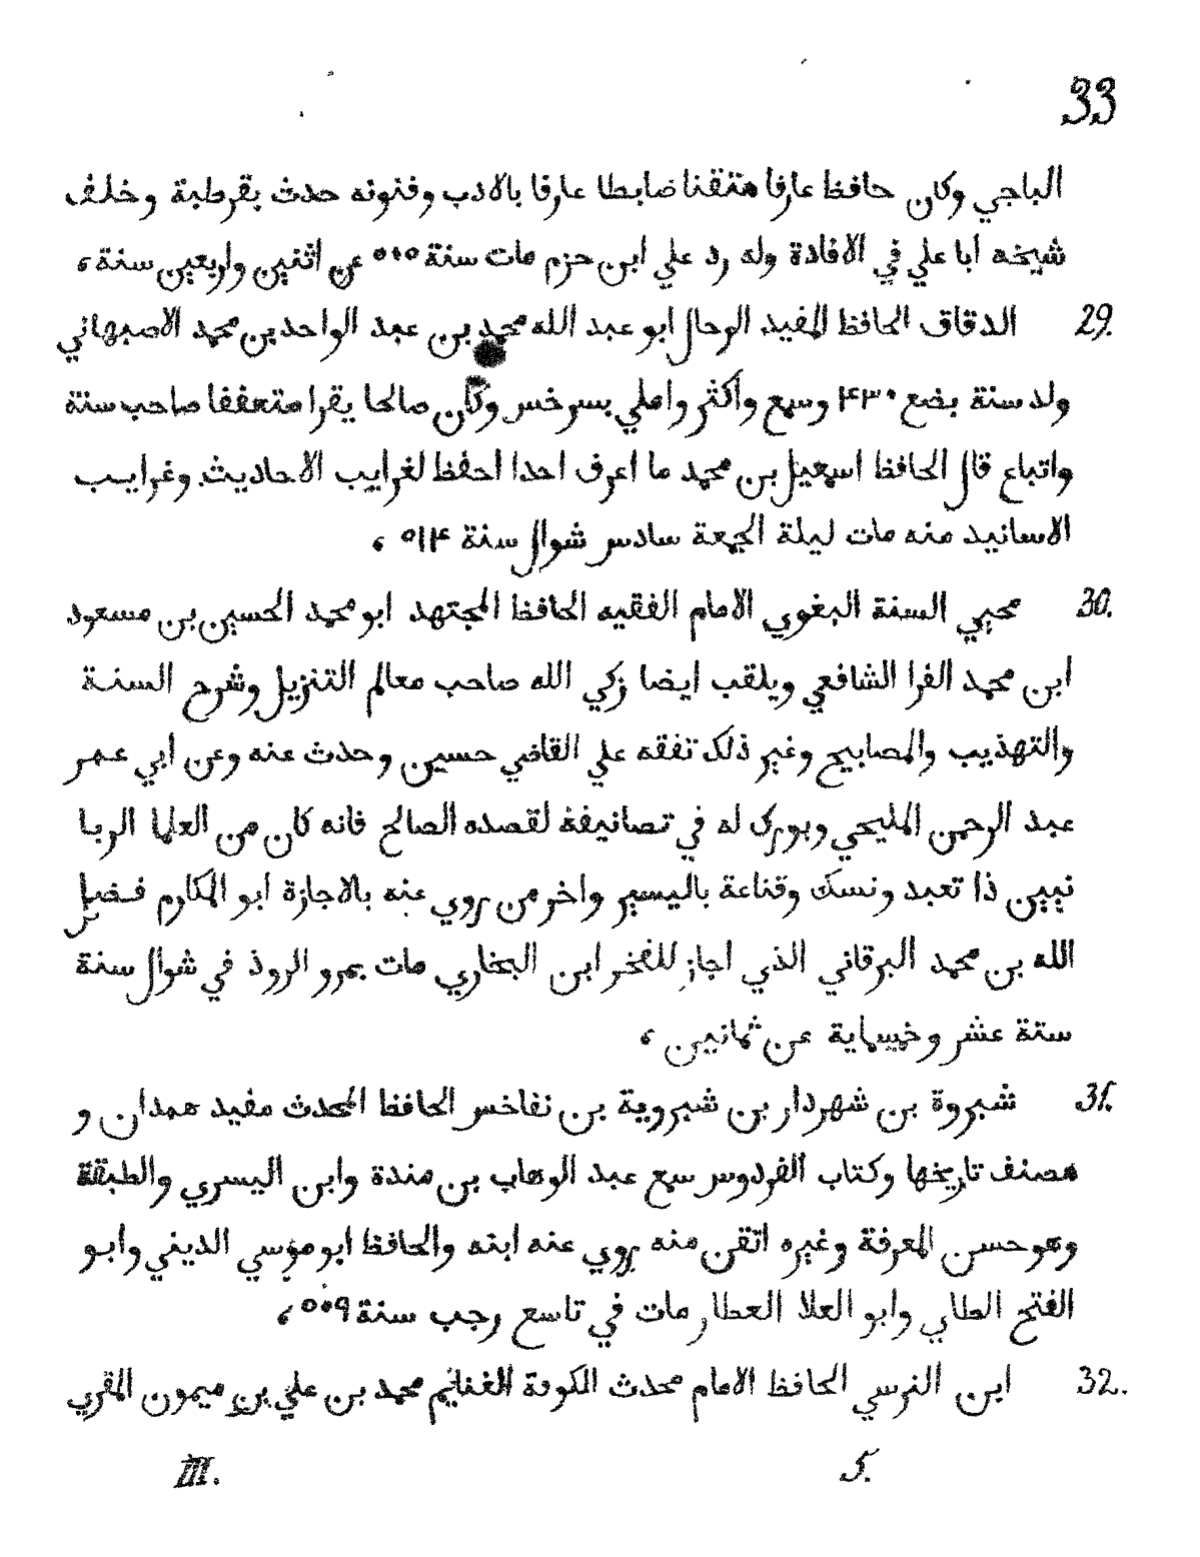 33
الباجي وكان حافظا عارفا متقنا ضابطا عارفا بالادب وفنونه حدث بقرطبة وخلف
شيخه ابا علي في الافادة وله رد علي ابن حزم مات سنة ٥٠٥ عن اثنين واربعين سنة،
29. الدقاق الحافظ المفيد الرحال ابو عبد الله محمد بن عبد الواحد بن محمد الاصبهاني
ولد سنة بضع ۴۳۰ وسمع واكثر واملي بسرخس وكان صالحا يقرا متعففا صاحب سنة
واتباع قال الحافظ اسمعيل بن محمد ما اعرف احدا احفظ لغرايب الاحاديث وغرايب
الاسانيد منه مات ليلة الجمعة سادس شوال سنة ۵۱۴ ،
30. محيي السنة البغوي الامام الفقيه الحافظ المجتهد ابو محمد الحسين بن مسعود
ابن محمد الفرا الشافعي ويلقب ايضا زكي الله صاحب معالم التنزيل وشرح السنة
والتهذيب والمصابيح وغير ذلك تفقه علي القاضي حسين وحدث عنه وعن ابي عمر
عبد الرحمن المليحي وبورك له في تصانيفة لقصده الصالح فانه كان من العلما الربا
نيين ذا تعبد ونسك وقناعة باليسير واخر من روي عنه بالاجازة ابو المكارم فضل
الله بن محمد البرقاني الذي اجاز للفخر ابن البخاري مات بمرو الروذ في شوال سنة
ستة عشر وخمسماية عن ثمانين ،
31. شيروة بن شهردار بن شيروية بن نفاخس الحافظ المحدث مفيد همدان و
مصنف تاريخها وكتاب الفردوس سمع عبد الوهاب بن مندة وابن اليسري والطبقة
وهو حسن المعرفة وغيره اتقن منه روي عنه ابنه والحافظ ابو موسي الديني وابو
الفتح الطاي وابو العلا العطار مات في تاسع رجب سنة ٥٠٩،
32. ابن النرسي الحافظ الامام محدث الكوفة الغنايم محمد بن علي بن ميمون المقري
III. 5.